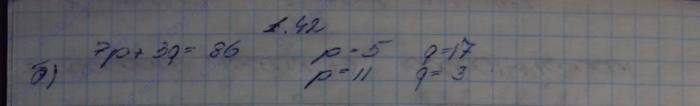 1.42
б) 7p+3q= 86 p=5 q=17
p=11 q=3